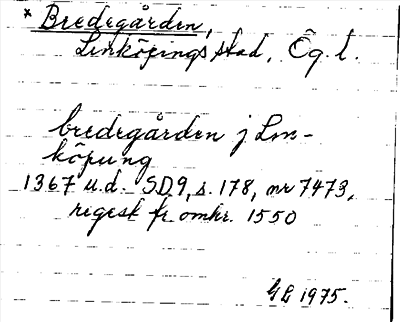 * Bredegården,
Linköpings stad, Ög. l.
bredegården j Lin-
köpung
1367 u.d. SD9, s. 178, nr 7473,
regest fr. omkr. 1550
GL 1975.